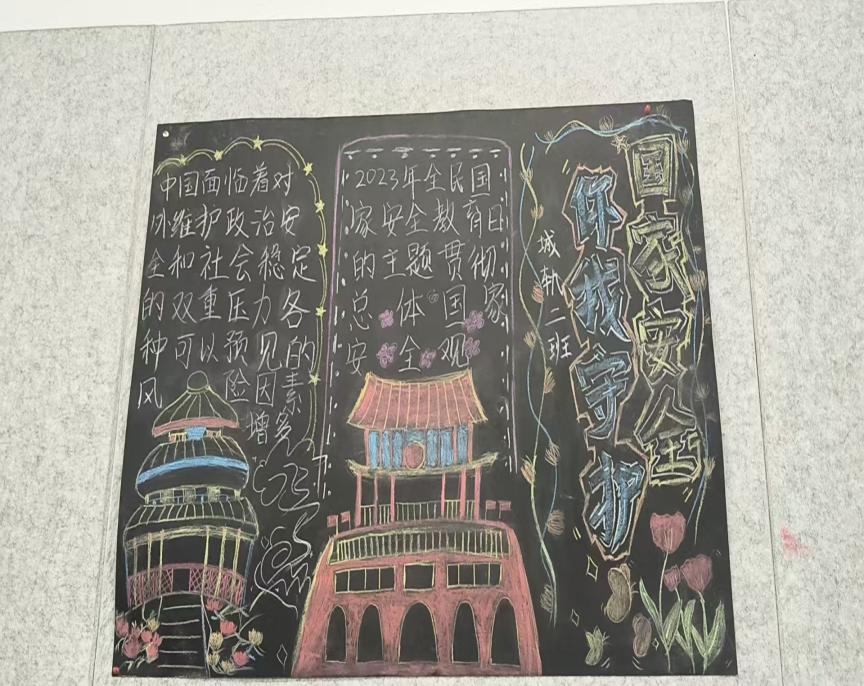 中国面临着对
外维护政治安
全和社会稳定
的双重压力各
种可以预见的
风险因素
增多
2023年全民国
家安全教育日
的主题贯彻
总体国家
安全观
城轨二班
你我守护
国家安全